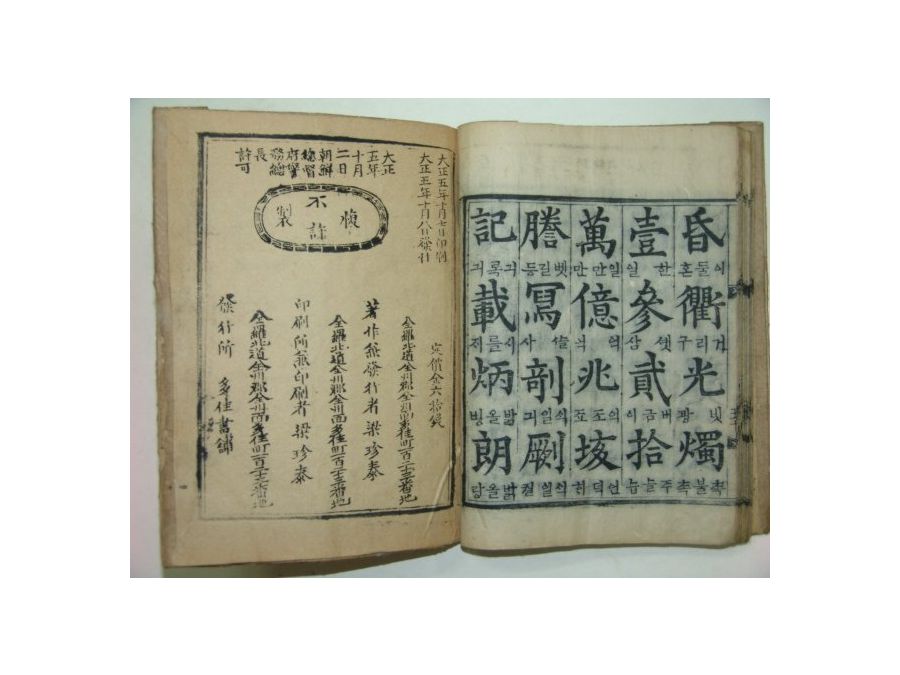 昏衢光燭
거리구
빗광
촉불촉
壹參貳拾
한일
셋삼
버금이
萬億兆垓
일만만
謄寫剞劂
벳길등
記載炳朗
긔록긔
밝을병
밝을랑
大正五年十月七日印刷
大正五年十月八日發行
定價金六拾錢
大正
五年
十月
二日
朝鮮
總督
府警
務總
長
許可
不許複製
全羅北道全州郡全州面多佳町百二十三番地
著作兼發行者梁珍泰
全羅北道全州郡全州面多佳町百二十三番地
印刷所兼印刷者梁珍泰
全羅北道全州郡全州面多佳町百二十三番地
發行所 多佳書舖